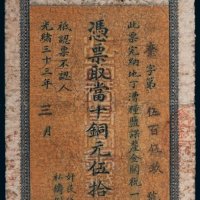 字第伍百
此票完納地丁漕糧鹽課釐金關稅一
憑票取當十銅元伍拾
祇認票不認人
光緒三十三年三月